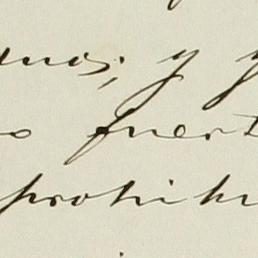 nas; y y
o fuert
prohib